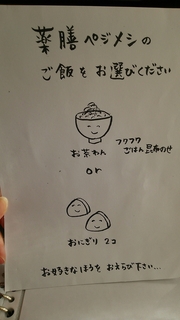 薬膳ベジメシの
ご飯をお選びください
お茶わん
フワフワ
ごはん昆布のせ
or
おにぎり 2コ
お好きなほうを おえらび下さい...